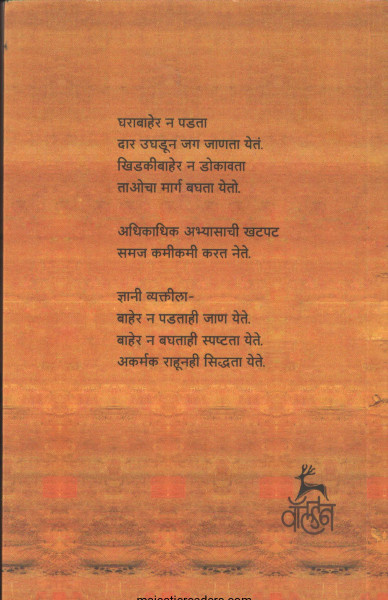 घराबाहेर न पडता
दार उघडून जग जाणता येतं.
खिडकीबाहेर न डोकावता
ताओचा मार्ग बघता येतो.
अधिकाधिक अभ्यासाची खटपट
समज कमीकमी करत नेते.
ज्ञानी व्यक्तीला-
बाहेर न पडताही जाण येते.
बाहेर न बघताही स्पष्टता येते.
अकर्मक राहूनही सिद्धता येते.
वॉल्डन
majesticreaders.com